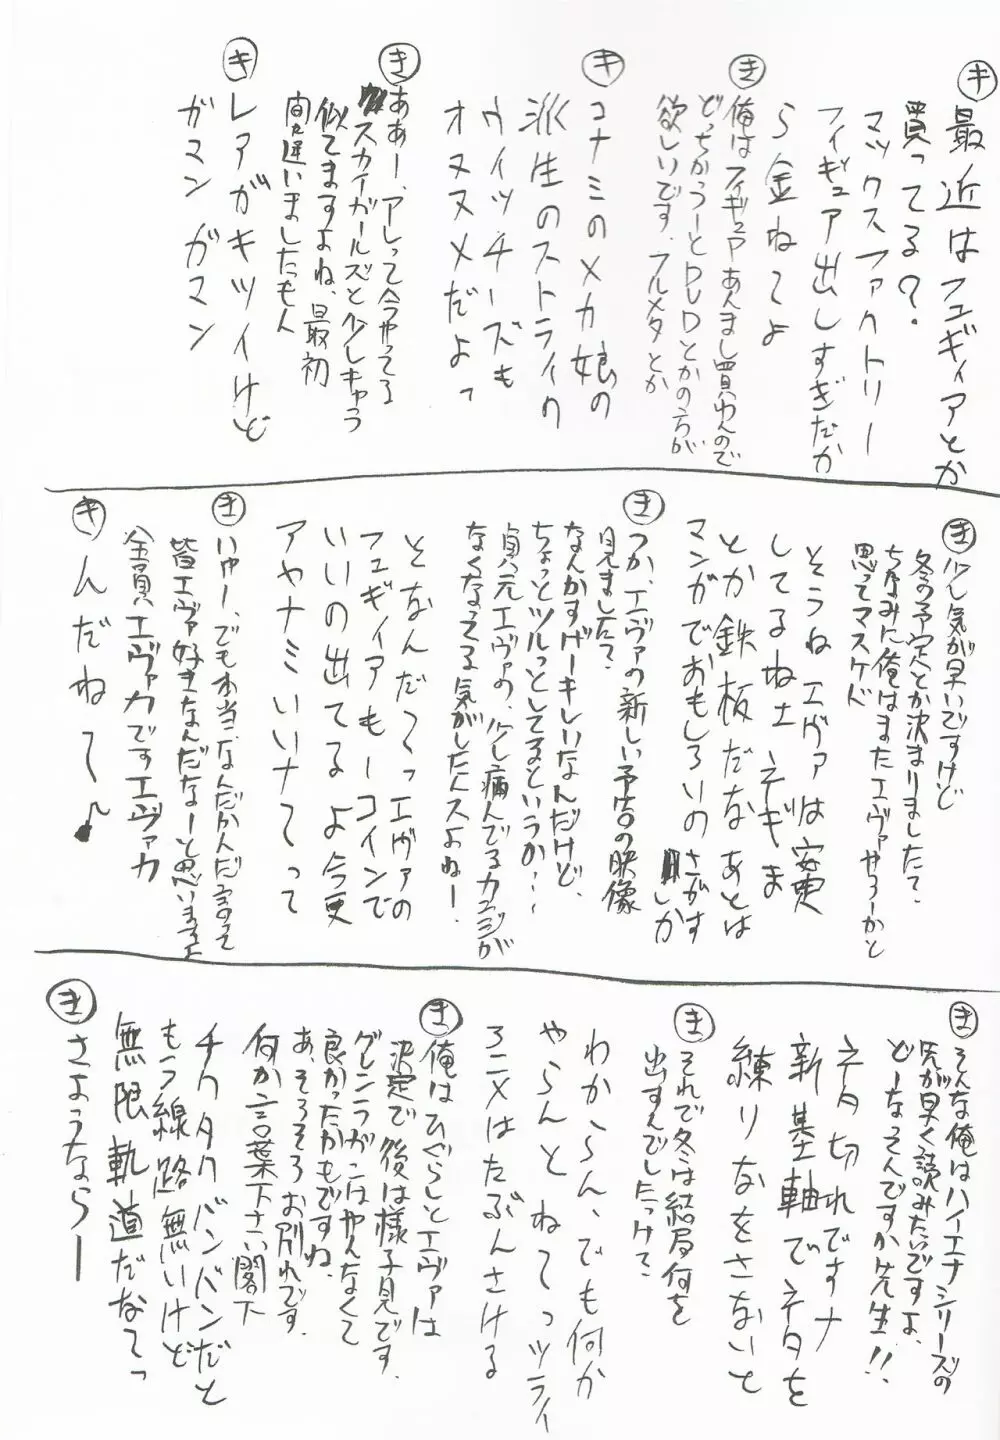 キ 最近はフュギィアとか
買ってる？
マックスファクトリー
フィギュア出しすぎだか
ら金ねてよ
き 俺はフィギュアあんまし買わんので
どっちかっうーとDVDとかの方が
欲しいです、フルメタとか
キ コナミのメカ娘の
派生のストライク
ウィッチーズも
オススメだよっ
き ああー、アレって今やってる
スカイガールズと少しキャラ
似てますよね、最初
間違いましたもん
キ レアがキツイけど
ガマンガマン
き 少し気が早いですけど
冬の予定とか決まりましたて？
ちなみに俺はまたエヴァやろーかと
思ってマスケド
そうねエヴァは安定
してるねェネギま
とか鉄板だなあとは
マンガでおもしろいのさがす
しか
き つか、エヴァの新しい予告の映像
見ましたて？
なんかすげーキレイなんだけど、
ちょっとツルっとしてるというか…
貞元エヴァの、少し病んでるカンジが
なくなってる気がしたんスよねー！
そなんだ〜っエヴァの
フュギィアもーコインで
いいの出てるよ今更
アヤナミいいナてって
き いやー、でも本当、なんだかんだ言って
皆エヴァ好きなんだなーと思いますよ
全員エヴァカですエヴァカ
キ んだねて〜♪
き そんな俺はハイエナシリーズの
先が早く読みたいですよ、
どーなってんですか先生！！
ネタ切れですナ
新基軸でネタを
練りなをさないと
き それで冬は結局何を
出すんでしたっけて？
わからん、でも何か
やらんとねてっツライ
アニメはたぶんさける
き 俺はひぐらしとエヴァは
決定で後は様子見です、
グレンラガンはやんなくて
良かったかもですね、
あ、そろそろお別れです、
何か言葉下さい閣下
チクタクバンバンだと
もう線路無いけど
無限軌道だなてっ
き さようならー